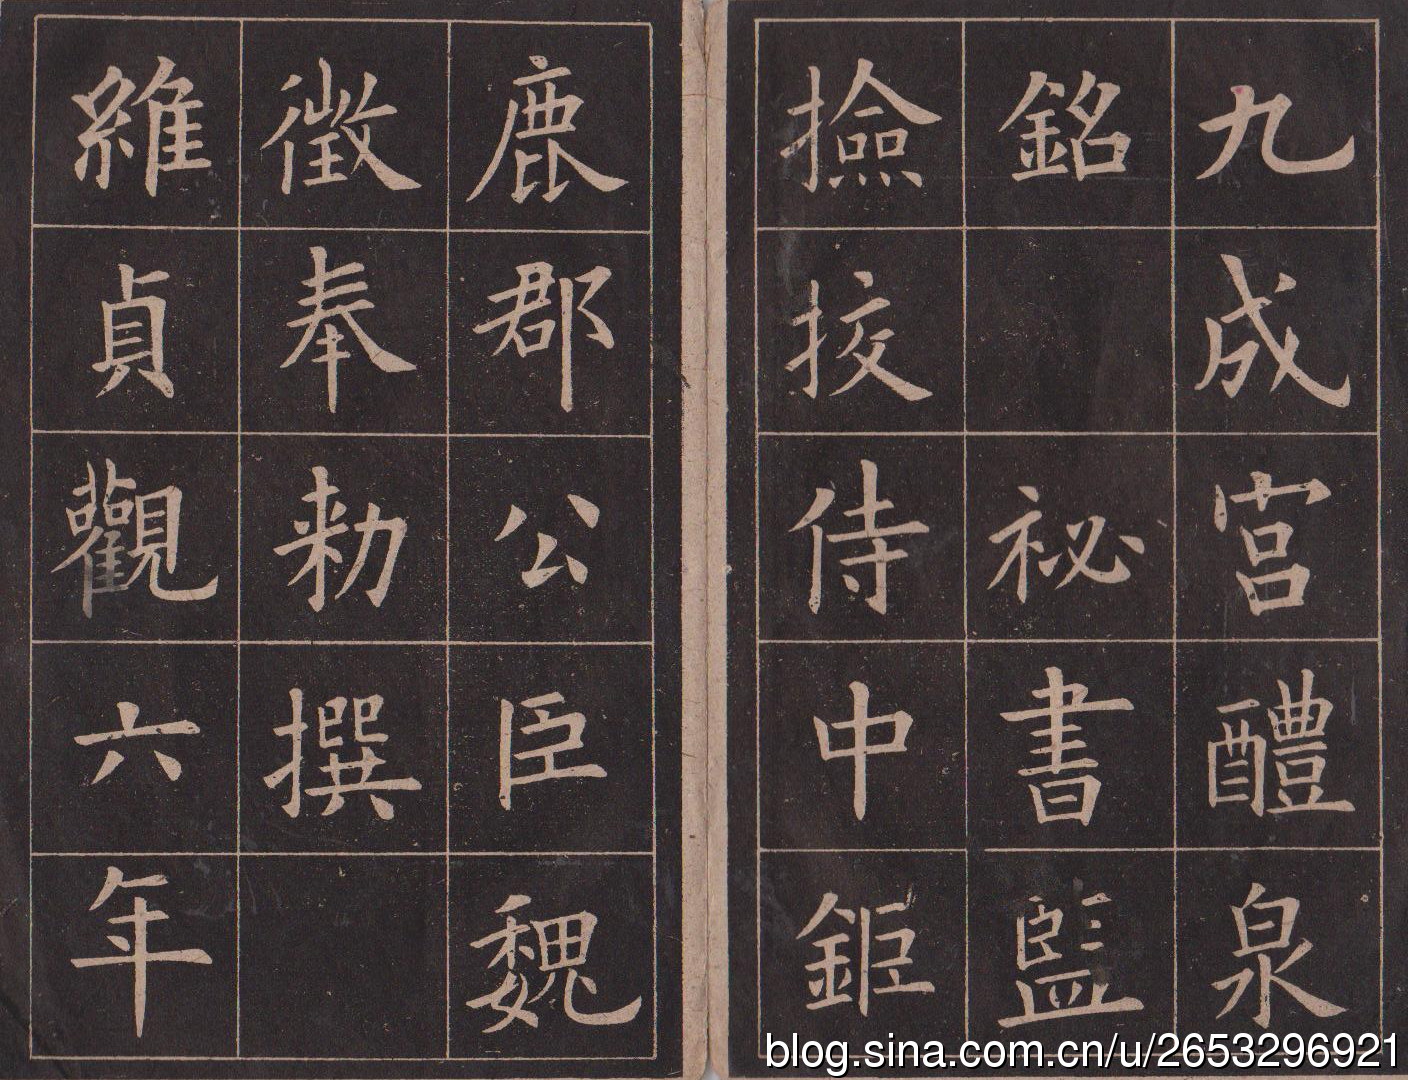 九成宮醴泉
銘 祕書監
撿挍侍中鉅
鹿郡公臣魏
徵奉勑撰
維貞觀六年
blog.sina.com.cn/u/2653296921